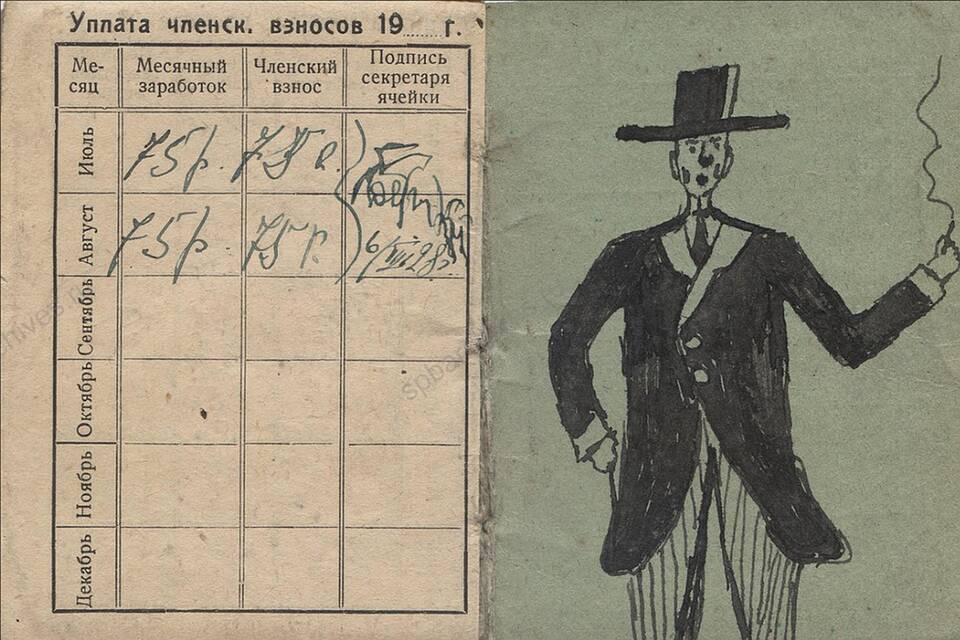 Уплата членск. взносов 19......г.
Ме-
сяц
Месячный
заработок
Членский
взнос
Подпись
секретаря
ячейки
Июль 75р. 75
Август 75р. 75
Сентябрь
Октябрь
Ноябрь
Декабрь